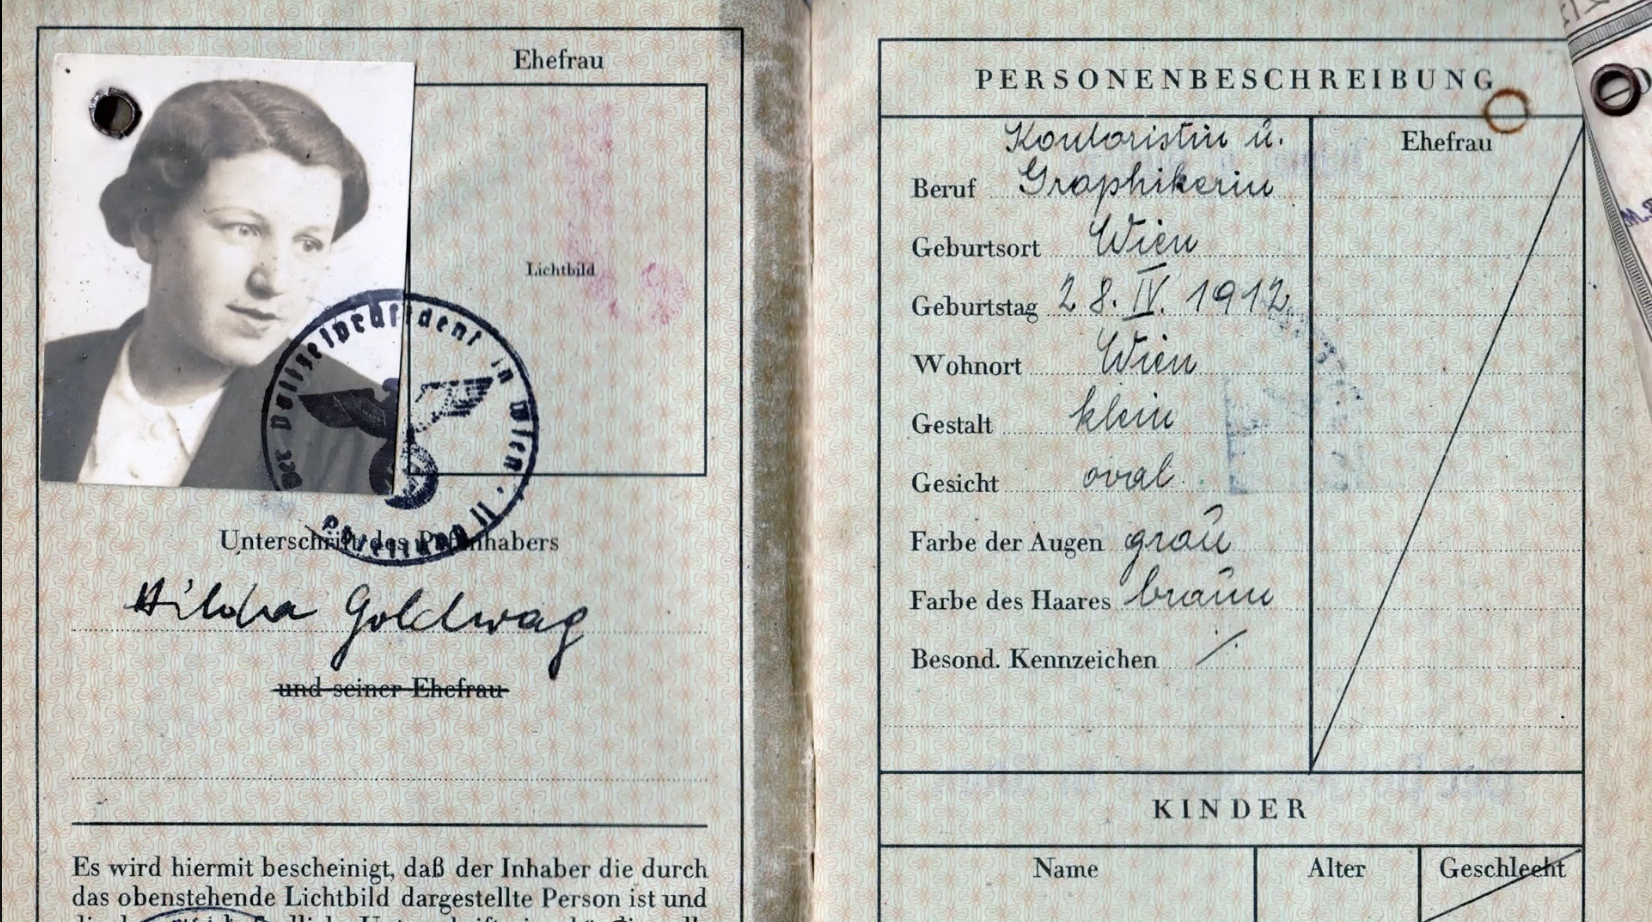 Ehefrau
Lichtbild
Der Polizeipräsident in Wien
Unterschrift des Paßinhabers
Hilda Goldwag
und seiner Ehefrau
Es wird hiermit bescheinigt, daß der Inhaber die durch
das obenstehende Lichtbild dargestellte Person ist und
PERSONENBESCHREIBUNG
Ehefrau
Kontoristin u.
Beruf Graphikerin
Geburtsort Wien
Geburtstag 28. IV. 1912
Wohnort Wien
Gestalt klein
Gesicht oval
Farbe der Augen grau
Farbe des Haares braun
Besond. Kennzeichen ·/.
KINDER
Name Alter Geschlecht